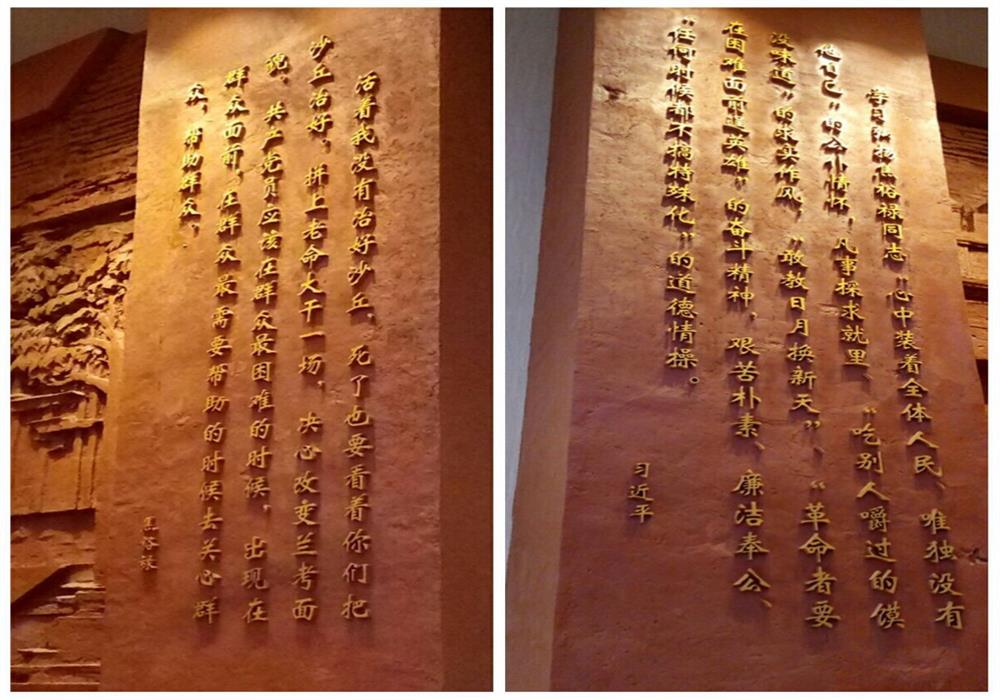 活着我没有治好沙丘，死了也要看着你们把
沙丘治好，拼上老命大干一场，决心改变兰考面
貌，共产党员应该在群众最困难的时候，出现在
群众面前，在群众最需要帮助的时候去关心群
众，帮助群众。
焦裕禄
学习弘扬焦裕禄同志“心中装着全体人民、唯独没有
他自己”的公仆情怀，凡事探求就里、“吃别人嚼过的馍
没味道”的求实作风，“敢教日月换新天”、“革命者要
在困难面前逞英雄”的奋斗精神，艰苦朴素、廉洁奉公、
“任何时候都不搞特殊化”的道德情操。
习近平